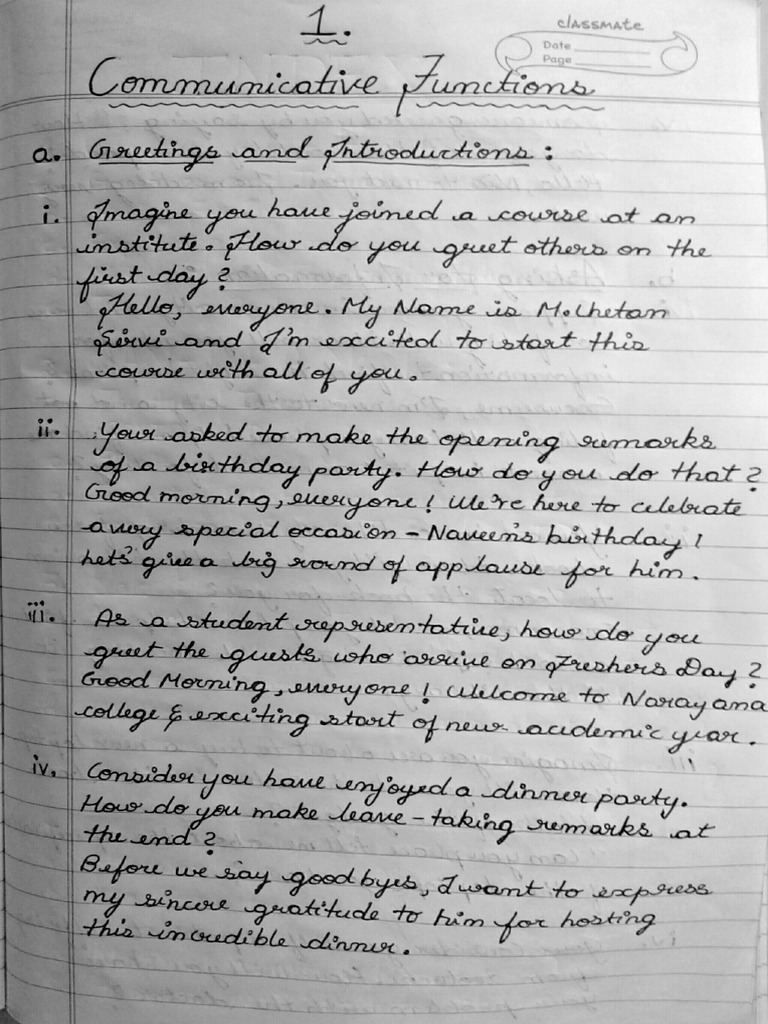 1.
classmate
Date
Page
Communicative Functions
a. Greetings and Introductions :
i. Imagine you have joined a course at an
institute. How do you greet others on the
first day?
Hello, everyone. My Name is M.Chetan
Servi and I'm excited to start this
course with all of you.
ii. Your asked to make the opening remarks
of a birthday party. How do you do that?
Good morning, everyone! We're here to celebrate
a very special occasion - Naveen's birthday!
Lets' give a big round of applause for him.
iii. As a student representative, how do you
greet the guests who arrive on Freshers Day?
Good Morning, everyone! Welcome to Narayana
college & exciting start of new acidemic year.
iv. Consider you have enjoyed a dinner party.
How do you make leave-taking remarks at
the end?
Before we say good byes, I want to express
my sincere gratitude to him for hosting
this incredible dinner.